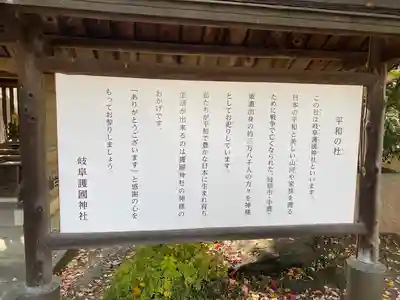 平和の社
この社は岐阜護國神社といいます。
日本の平和と美しい山河や家族を護る
ために戦争で亡くなられた、岐阜市・中濃・
東濃出身の約三万八千人の方々を神様
としてお祀りしています。
私たちが平和で豊かな日本に生まれ育ち
生活が出来るのは護國神社の神様の
おかげです。
「ありがとうございます」と感謝の心を
もってお参りしましょう。
岐阜護國神社